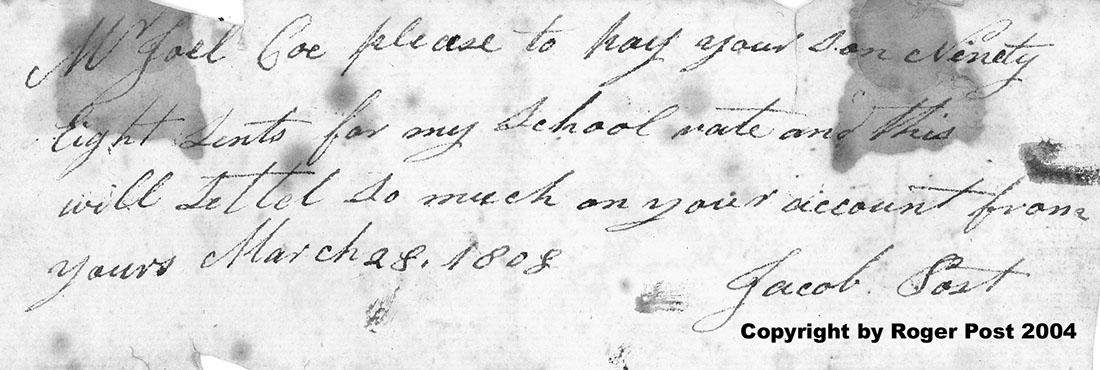 Mr Joel Coe please to pay your Son Ninety
Eight Sents for my School rate and this
will Settel So much on your account from
yours March 28. 1808
Jacob. Post
Copyright by Roger Post 2004